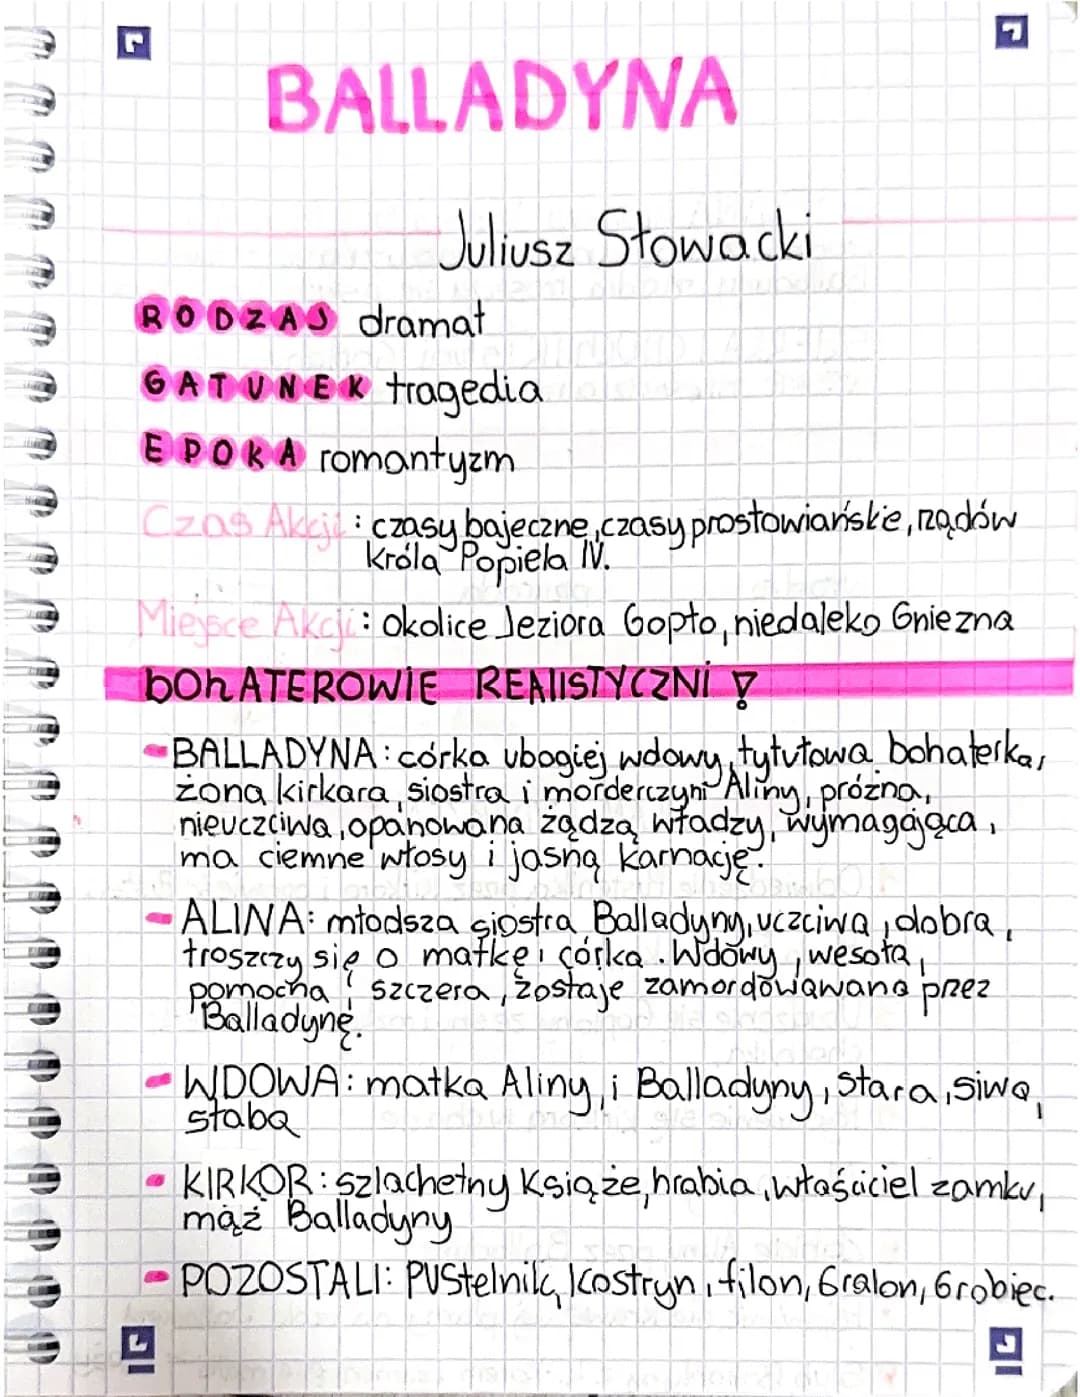 BALLADYNA
Juliusz Słowacki
RODZAJ dramat
GATUNEK tragedia
EPOKA romantyzm
Czas Akcji: czasy bajeczne, czasy prosłowiańskie, rządów
Króla Popiela IV.
Miejsce Akcji: okolice Jeziora Gopło, niedaleko Gniezna
bOhATEROWiE REAlISTYCZNi !
- BALLADYNA: córka ubogiej wdowy, tytułowa bohaterka,
żona kirkora, siostra i morderczyni Aliny, próżna,
nieuczciwa, opanowana żądzą władzy, wymagająca,
ma ciemne włosy i jasną karnację.
- ALINA: młodsza siostra Balladyny, uczciwa, dobra,
troszczy się o matkę, córka Wdowy, wesoła,
pomocna i szczera, zostaje zamordowawana przez
Balladynę.
- WDOWA: matka Aliny i Balladyny, stara, siwa,
słaba
- KIRKOR: szlachetny Książe, hrabia, właściciel zamku,
mąż Balladyny
- POZOSTALI: PUStelnik, Kostryn, filon, Gralon, Grabiec.